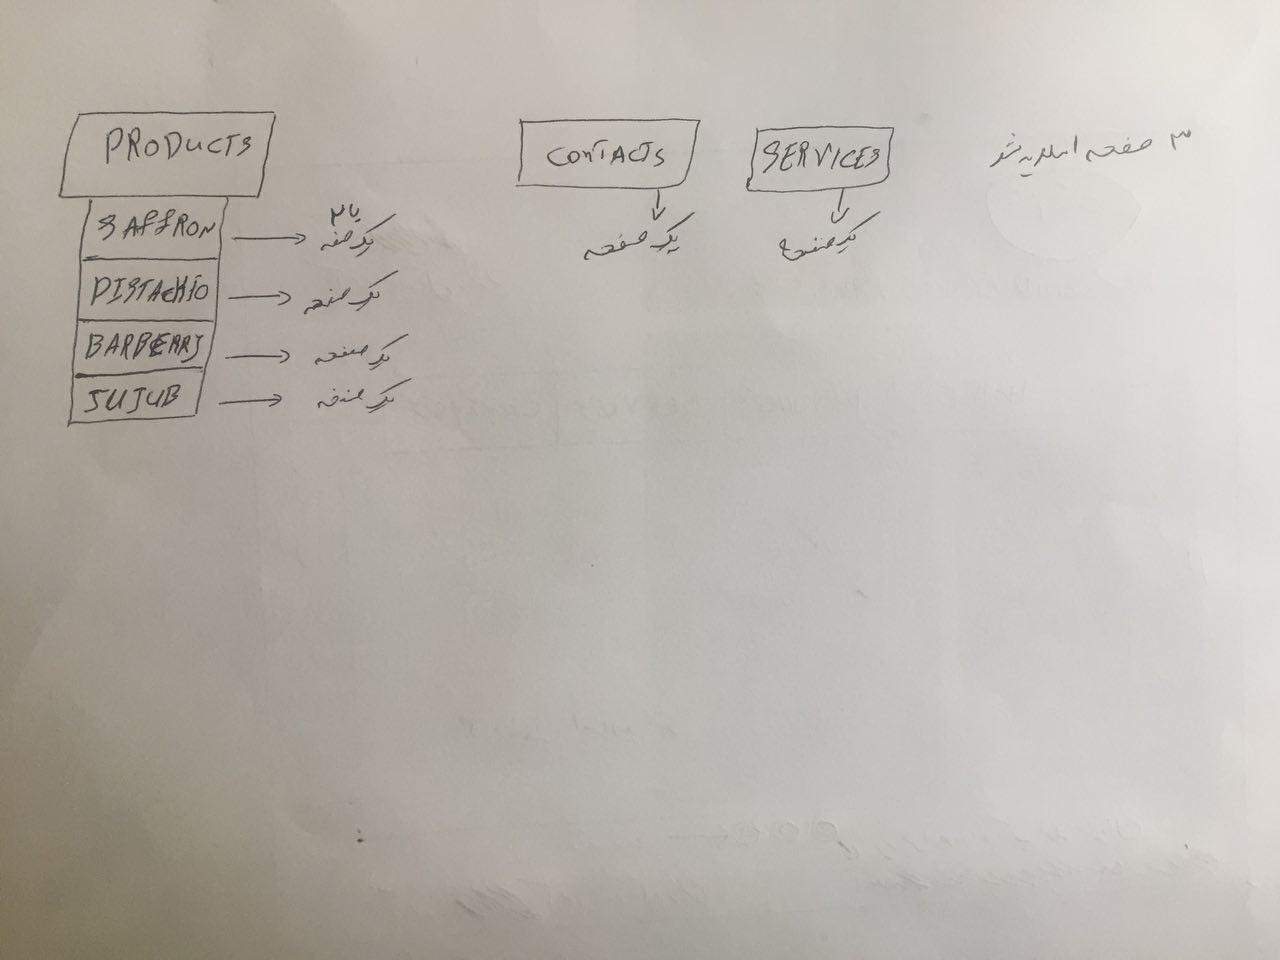 PRODUCTS
SAFFRON
یا ۲
یک صفحه
PISTACHIO
یک صفحه
BARBERRY
یک صفحه
JUJUB
یک صفحه
CONTACTS
یک صفحه
SERVICES
یک صفحه
۳ صفحه اسلایدشو